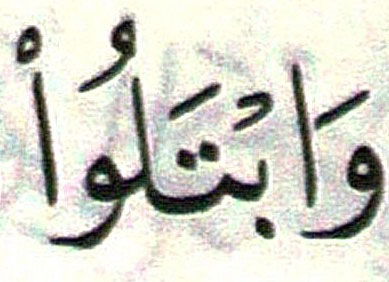 وَابْتَلُواْ